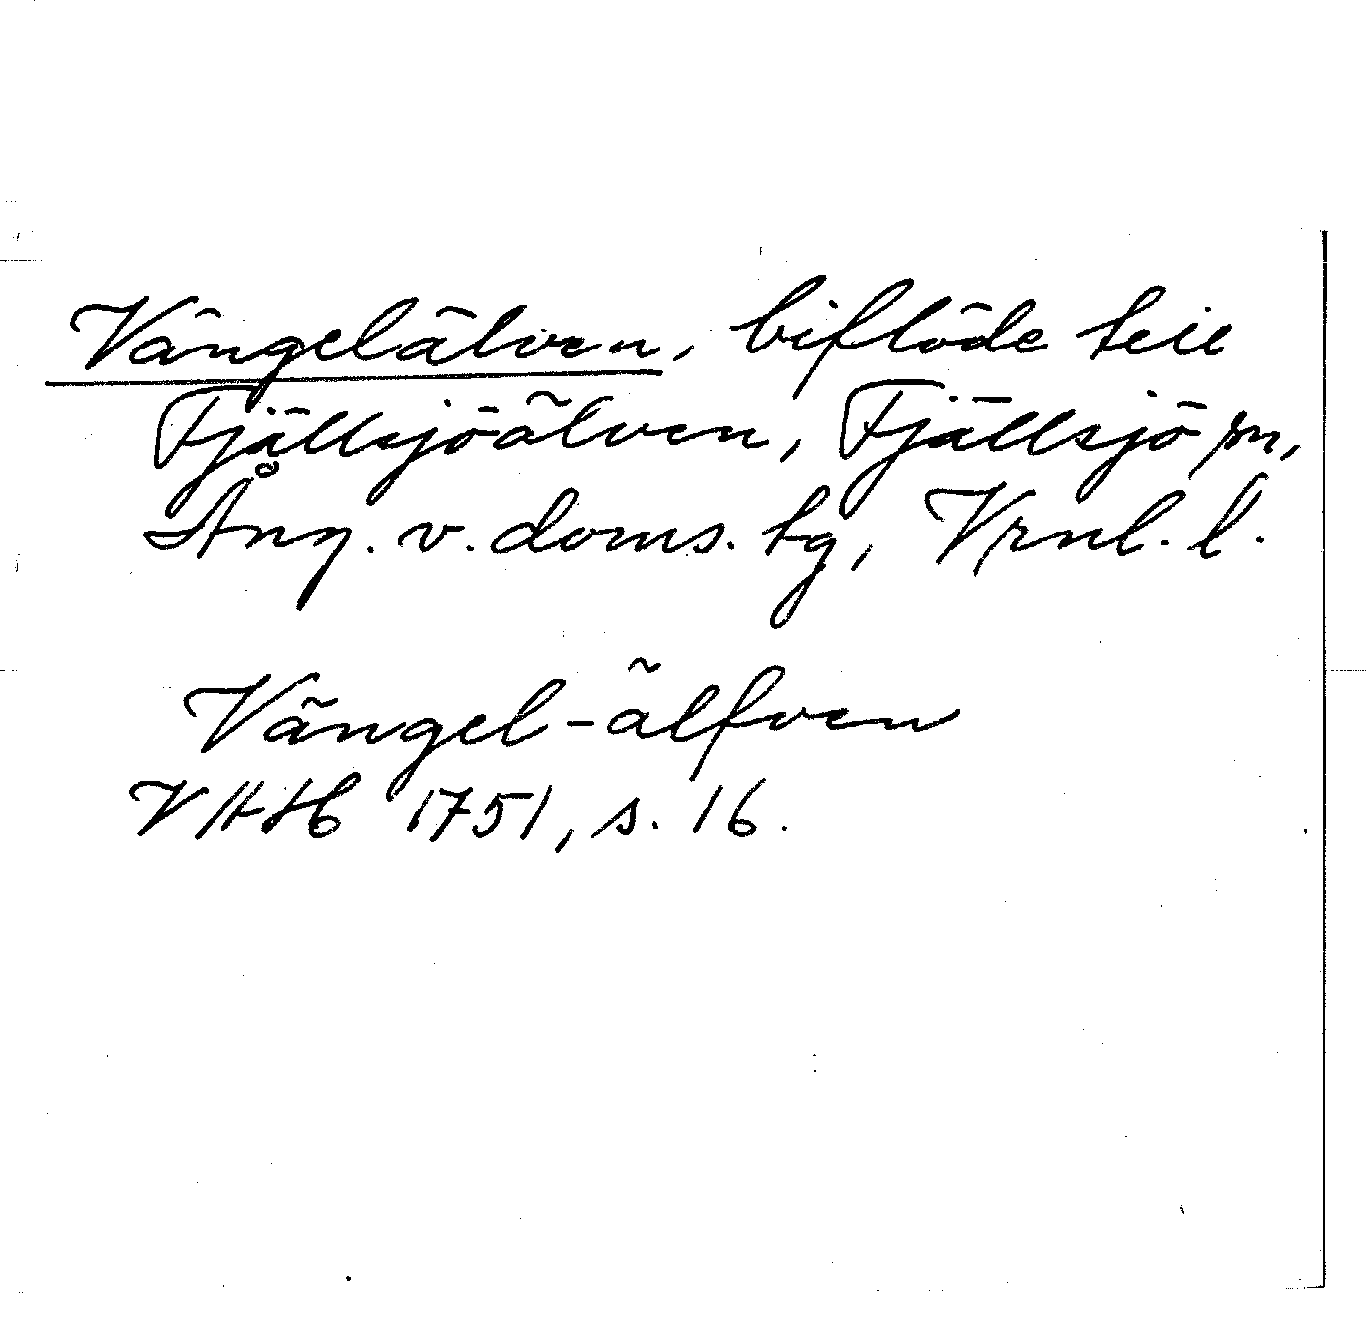 Vängelälven, biflöde till
Fjällsjöälven, Fjällsjö sn,
Ång. v. doms. tg, Vrnl. l.
Vängel-älfven
VHAH 1751, s. 16.